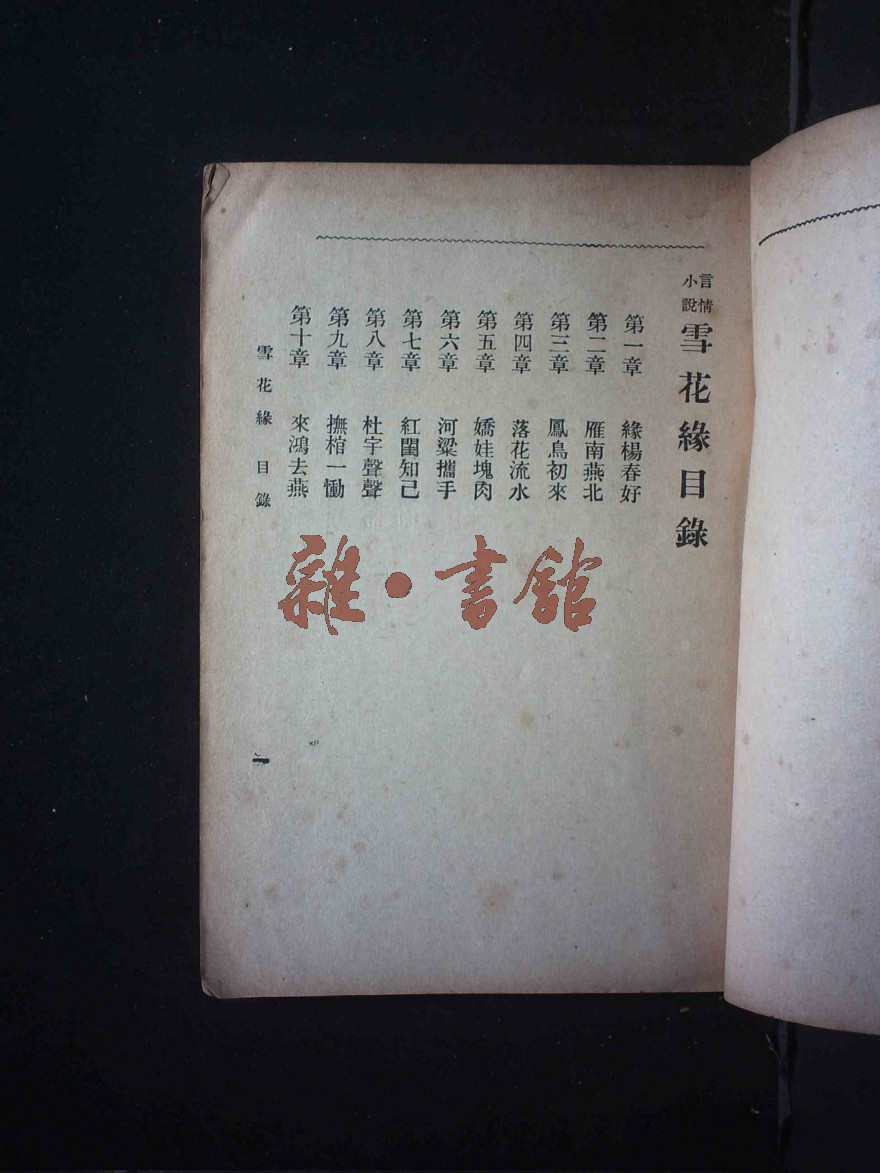 言情小說 雪花緣目錄
第一章 緣楊春好
第二章 雁南燕北
第三章 鳳鳥初來
第四章 落花流水
第五章 嬌娃塊肉
第六章 河粱攜手
第七章 紅閨知己
第八章 杜宇聲聲
第九章 撫棺一慟
第十章 來鴻去燕
雪花緣 目錄
一
雜·書館